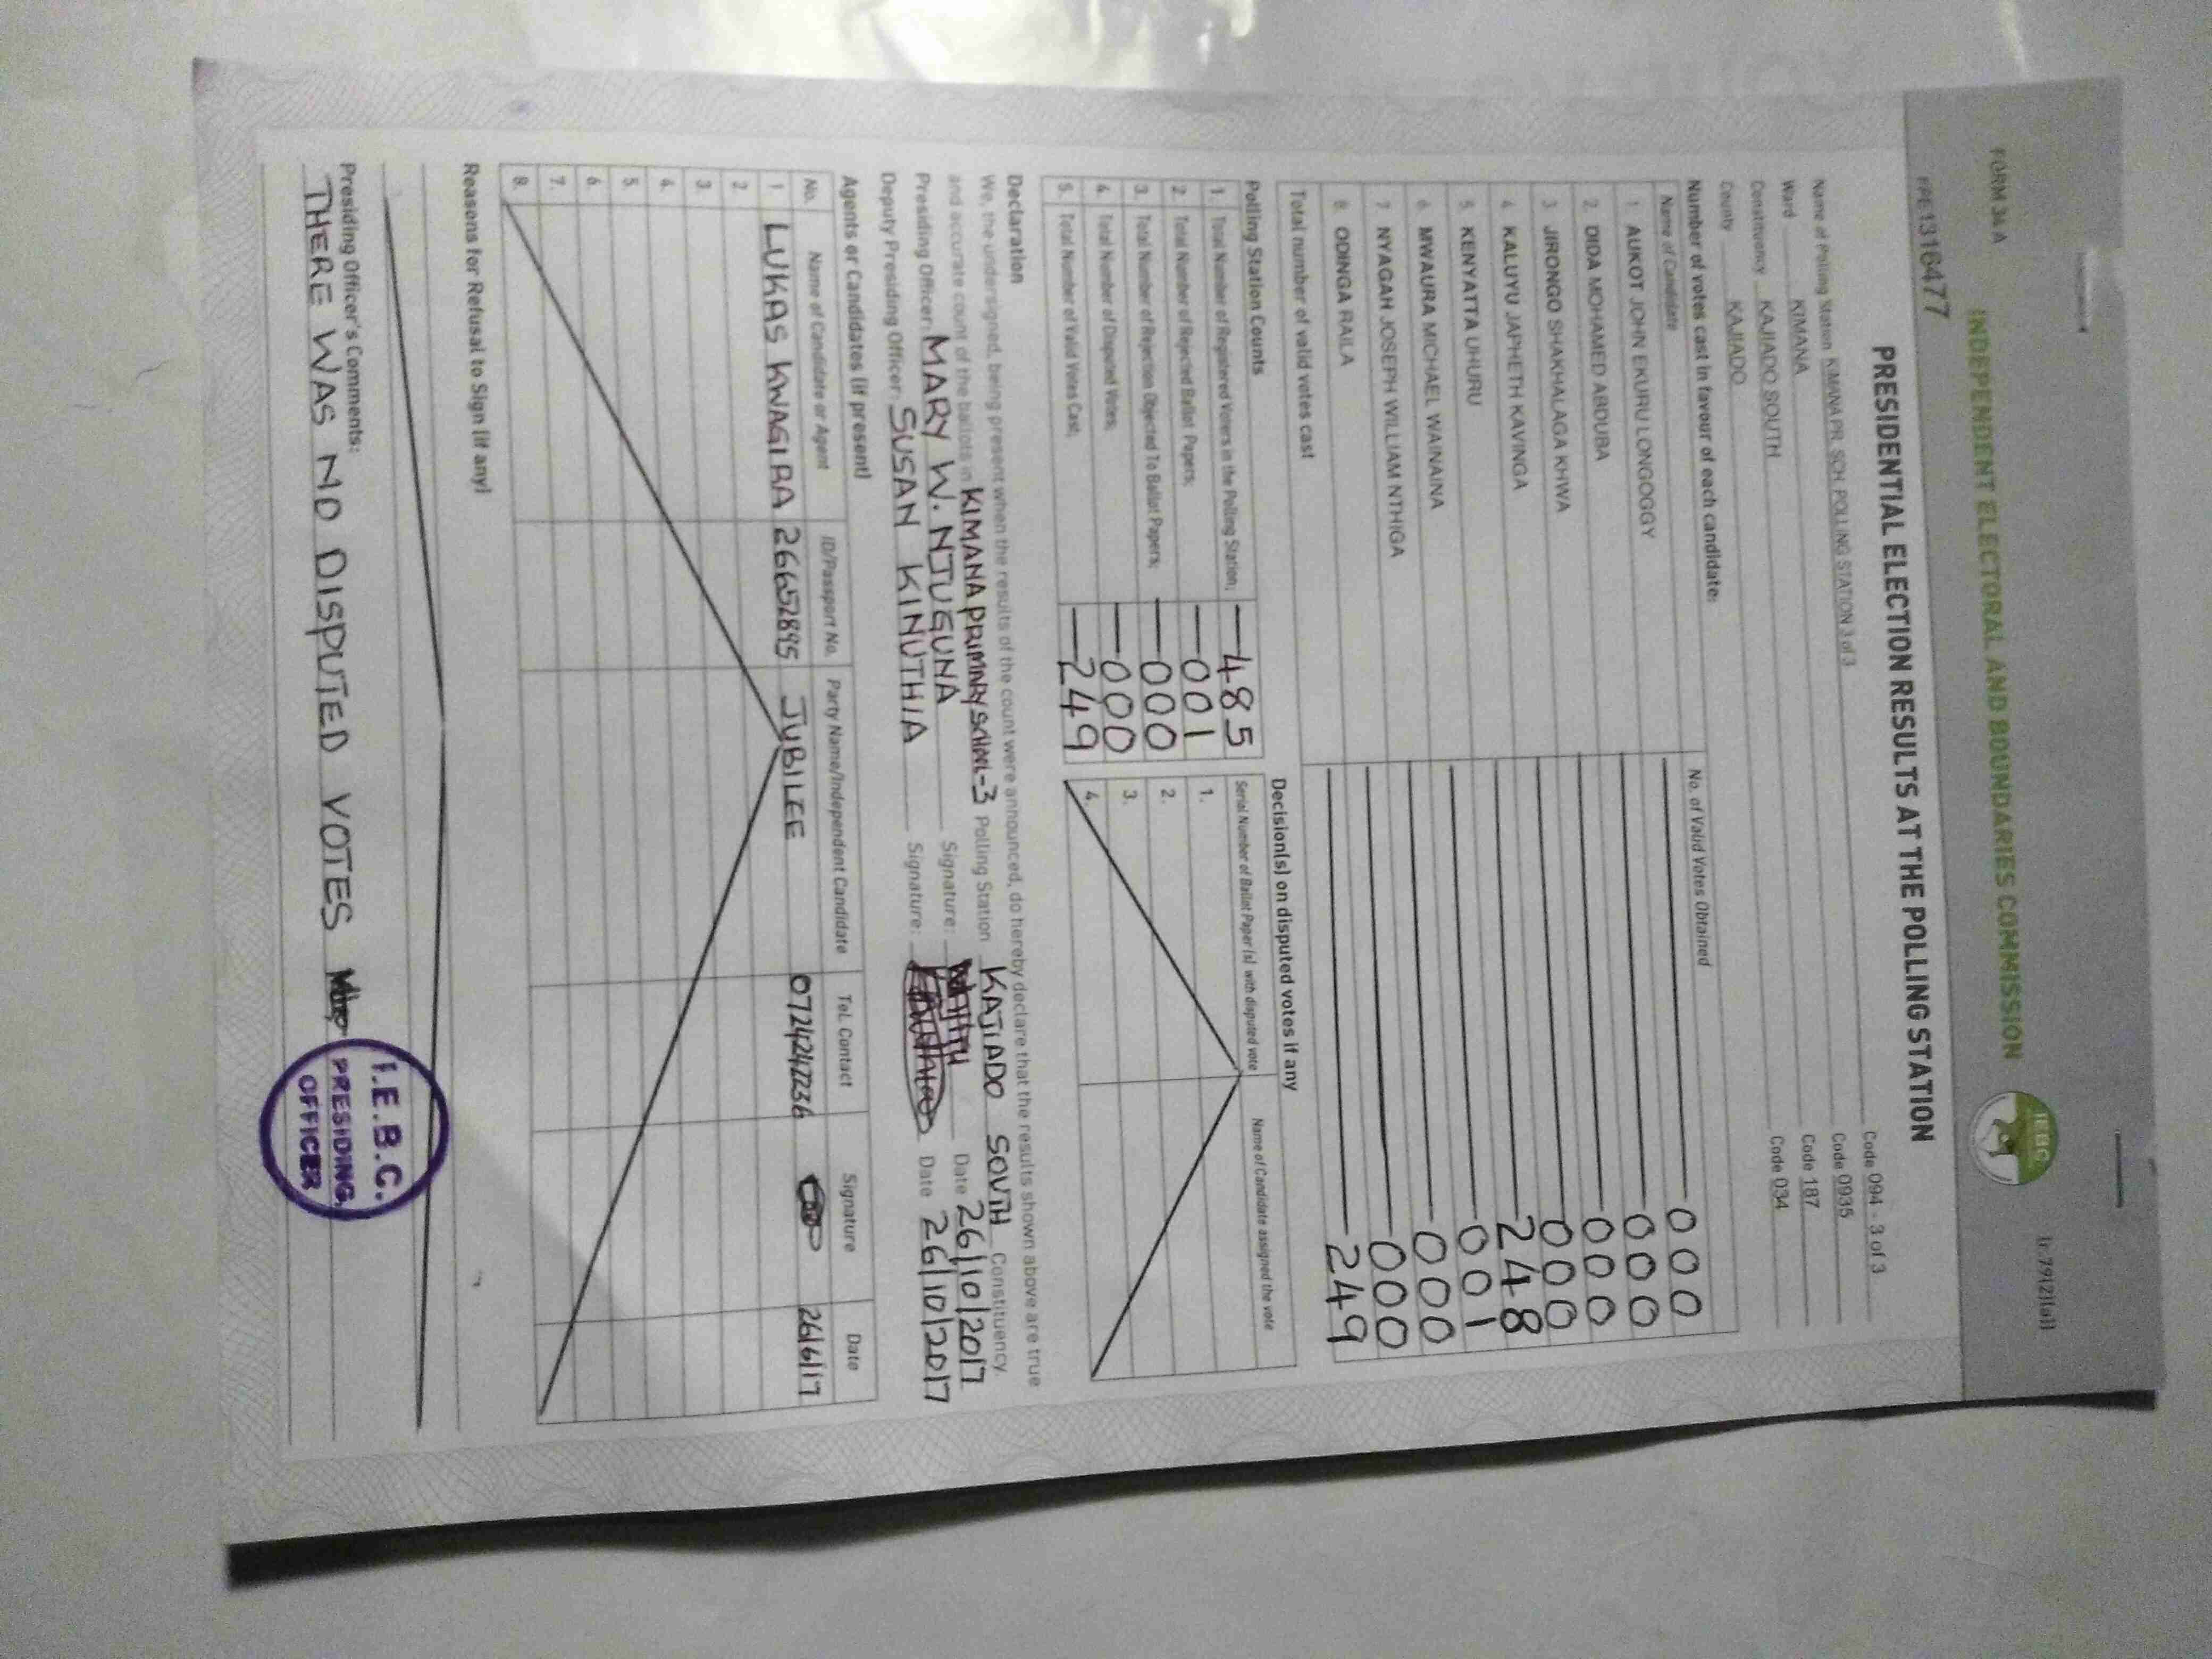 FORM 34 A
r.79(2)(a)
INDEPENDENT ELECTORAL AND BOUNDARIES COMMISSION
IEBC
PRESIDENTIAL ELECTION RESULTS AT THE POLLING STATION
Name of Polling Station KIMANA PR. SCH. POLLING STATION 3 of 3 Code 094 - 3 of 3
Ward KIMANA Code 0935
Constituency KAJIADO SOUTH Code 187
County KAJIADO Code 034
Number of votes cast in favour of each candidate:
Name of Candidate No. of Valid Votes Obtained
1 AUKOT JOHN EKURU LONGOGGY 000
2. DIDA MOHAMED ABDUBA 000
3 JIRONGO SHAKHALAGA KHWA 000
4 KALUYU JAPHETH KAVINGA 000
5. KENYATTA UHURU 248
6 MWAURA MICHAEL WAINAINA 001
7 NYAGAH JOSEPH WILLIAM NTHIGA 000
8. ODINGA RAILA 000
Total number of valid votes cast 249
Polling Station Counts
1. Total Number of Registered Voters in the Polling Station; 485
2 Total Number of Rejected Ballot Papers; 001
3. Total Number of Rejection Objected To Ballot Papers; 000
4. Total Number of Disputed Votes; 000
5. Total Number of Valid Votes Cast; 249
Decision(s) on disputed votes if any
Serial Number of Ballot Paper (s) with disputed vote Name of Candidate assigned the vote
1.
2.
3.
4.
Declaration
We, the undersigned, being present when the results of the count were announced, do hereby declare that the results shown above are true
and accurate count of the ballots in KIMANA PRIMARY SCHOOL-3 Polling Station KAJIADO SOUTH Constituency.
Presiding Officer: MARY W. NJUGUNA Signature: Date 26/10/2017
Deputy Presiding Officer: SUSAN KINUTHIA Signature: Date 26/10/2017
Agents or Candidates (if present)
No. Name of Candidate or Agent ID/Passport No. Party Name/Independent Candidate Tel. Contact Signature Date
1 LUKAS KWAGIRA 26652895 JUBILEE
2.
3.
4.
5.
6
7.
8.
Reasons for Refusal to Sign (if any)
Presiding Officer's Comments:
THERE WAS NO DISPUTED VOTES
I.E.B.C.
PRESIDING
OFFICER